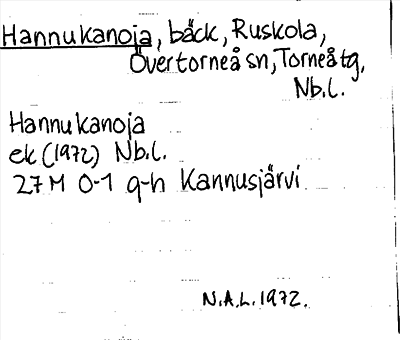 Hannukanoja, bäck, Ruskola,
Övertorneå sn, Torneåtg,
Nb.l.
Hannukanoja
ek (1972) Nb.l.
27M 0-1 g-h Kannusjärvi
N.A.L. 1972.